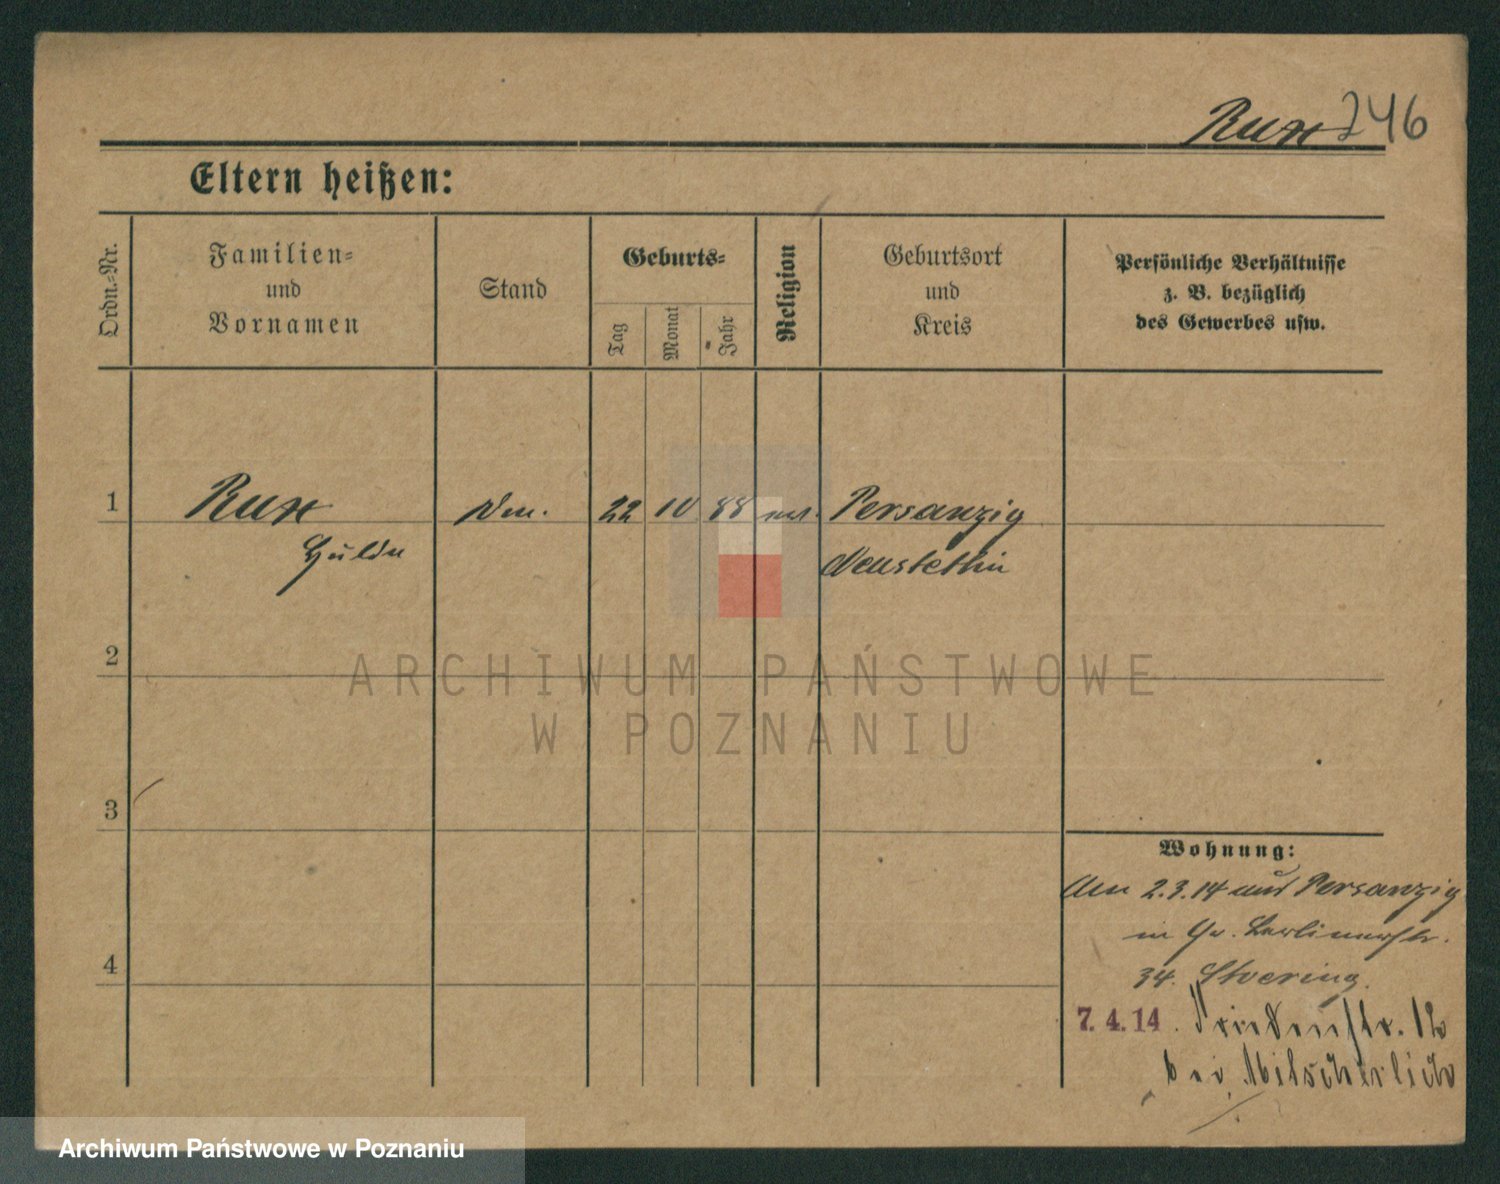 Rux 246
Eltern heißen:
Ordn.-Nr.
Familien-
und
Vornamen
Stand
Geburts-
Tag
Monat
Jahr
Religion
Geburtsort
und
Kreis
Persönliche Verhältnisse
z. B. bezüglich
des Gewerbes usw.
1 Rux 22 10 88 Persanzig
Neustettin
2
3
4
Wohnung:
Am 2.3.14 aus Persanzig
in Gr. Berlinerstr.
34. Stoering.
7. 4. 14. Friedenstr. 12
bei Mitscherlich
ARCHIWUM PAŃSTWOWE
W POZNANIU
Archiwum Państwowe w Poznaniu